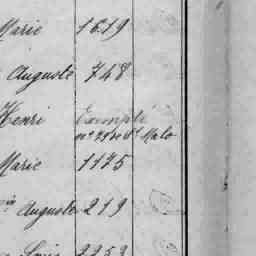 Marie 1619
Auguste 748
Henri Exempté
St Malo
Marie 1175
Auguste 219
Louis 2252